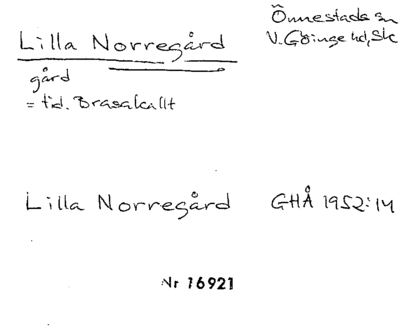 Önnestads sn
Lilla Norregård
V. Göinge hd, Sk
gård
= tid. Brasakallt
Lilla Norregård GHÅ 1952:14
Nr 16921